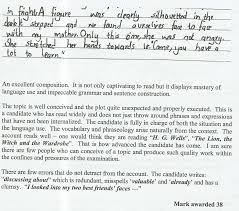 a frightful figure was clearly silhouetted in the
dark stepped and we found ourselves face to face
with my mother. Only this time she was not angry.
She stretched her hands towards us. Come, you have a
lot to learn.
An excellent composition. It is not only captivating to read but it displays mastery of
language use and impeccable grammar and sentence construction.
The topic is well conceived and the plot quite unexpected and properly executed. This is
a candidate who has read widely and does not just throw around phrases and expressions
that have not been internalized. The candidate is fully in charge of both the situation and
the language use. The vocabulary and phraseology arise naturally from the context. The
account reads well – one would think they are reading "H. G. Wells", "The Lion, the
Witch and the Wardrobe". That is how advanced the candidate has come. I am sure
there are few people who can conceive of a topic and produce such quality work within
the confines and pressures of the examination.
There are few errors that do not detract from the account. The candidate writes:
"discussing about" which is redundant, misspells 'valuable' and 'already' and has a
clumsy. "I looked into my two best friends' faces —"
Mark awarded 38